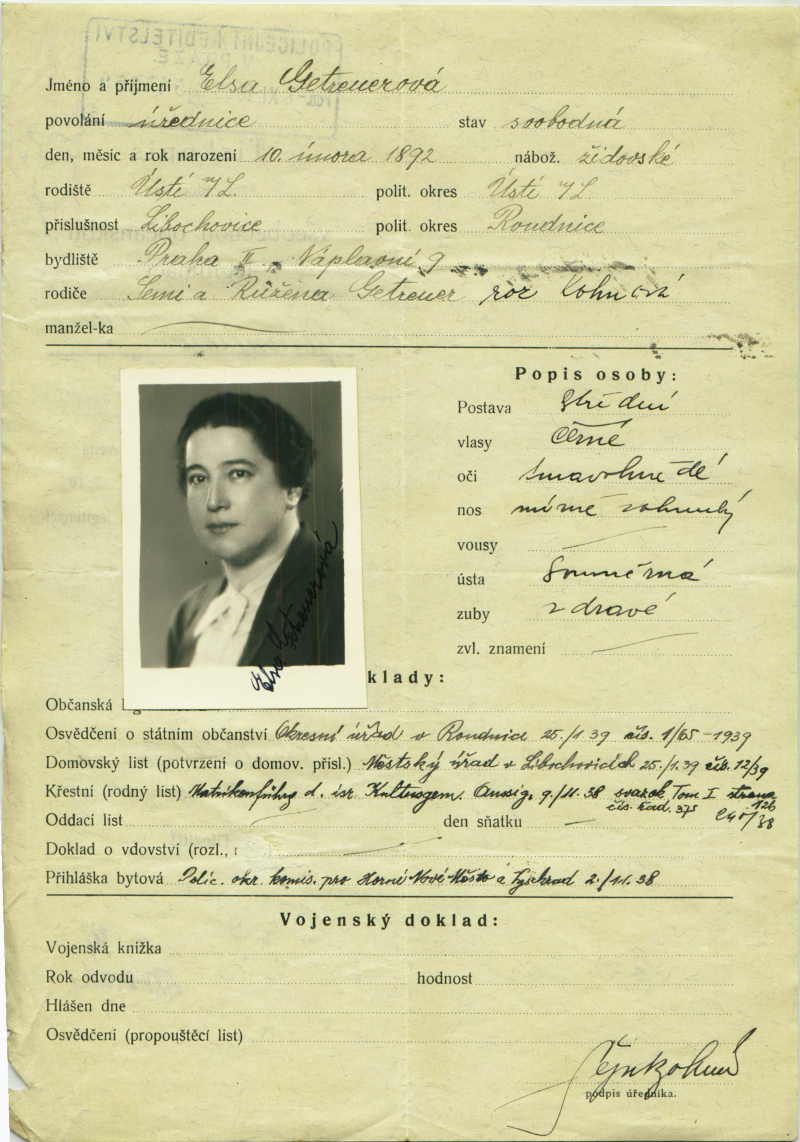 POLICEJNÍ ŘEDITELSTVÍ
Jméno a příjmení Elsa Getreuerová
povolání úřednice stav svobodná
den, měsíc a rok narození 10. února 1892 nábož. židovské
rodiště Ústí n/L. polit. okres Ústí n/L.
příslušnost Libochovice polit. okres Roudnice
bydliště Praha II., Náplavní 9
rodiče Semi a Růžena Getreuer roz Kohnová
manžel-ka
Popis osoby:
Postava střední
vlasy černé
oči tmavohnědé
nos mírně zahnutý
vousy
ústa souměrná
zuby zdravé
zvl. znamení
Elsa Getreuerová
klady:
Občanská
Osvědčení o státním občanství Okresní úřad v Roudnici 25./1 39 čís. 1/65-1939
Domovský list (potvrzení o domov. přísl.) Městský úřad v Libochovicích 25./1.39 čís. 12/39
Křestní (rodný list) Matrikenführg d. isr. Kultusgem. Aussig. 9./11.38 svazek Tom I strana 126
čís. řad. 375
Oddací list den sňatku
Doklad o vdovství (rozl.,
Přihláška bytová Polic. okr. komis. pro Horní Nové Město a Vyšehrad 2./11.38
Vojenský doklad:
Vojenská knížka
Rok odvodu hodnost
Hlášen dne
Osvědčení (propouštěcí list)
podpis úředníka.